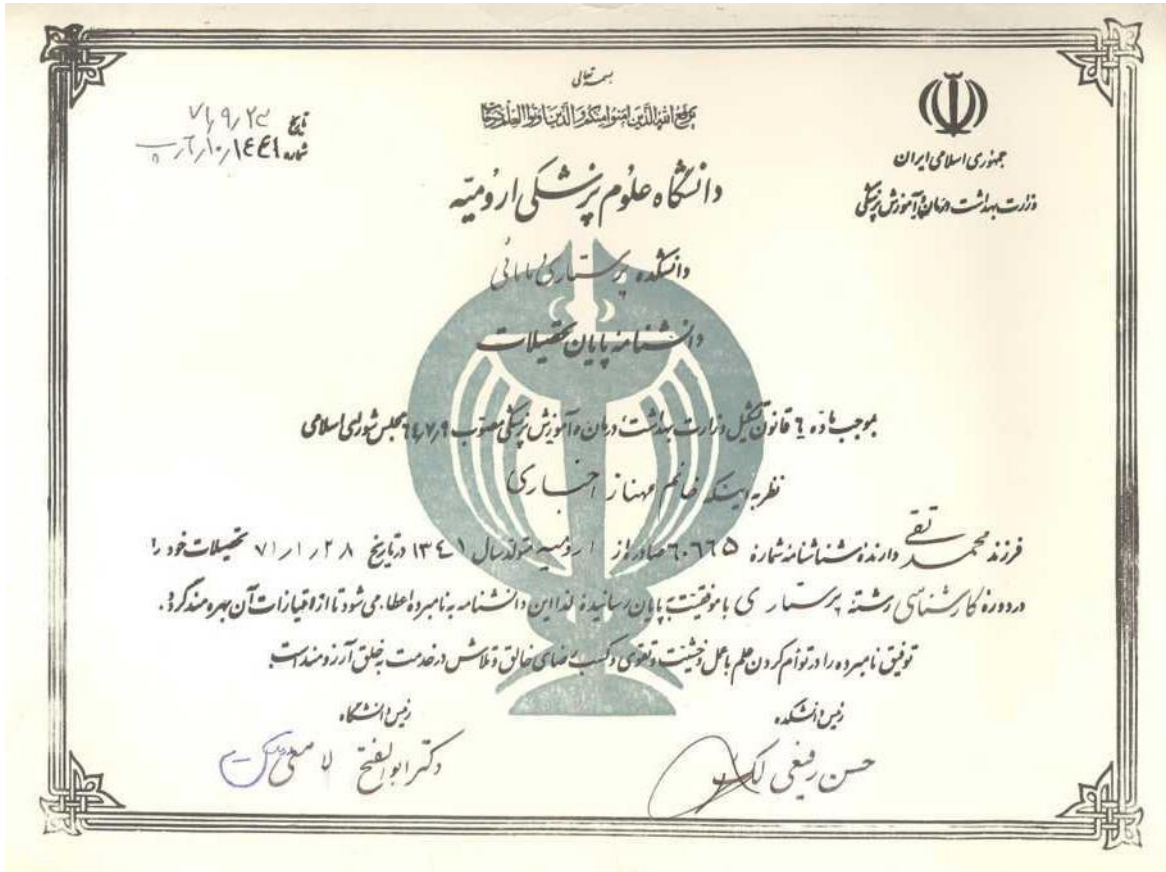 بسمه تعالی
یرفع الله الذین امنوا منکم و الذین اوتوا العلم درجات
جمهوری اسلامی ایران
وزارت بهداشت درمان و آموزش پزشکی
تاریخ ۷۱٫۹٫۲۴
شماره ۱۴۴۱
دانشگاه علوم پزشکی ارومیه
دانشکده پرستاری مامائی
دانشنامه پایان تحصیلات
بموجب ماده ۶ قانون تشکیل وزارت بهداشت، درمان و آموزش پزشکی مصوب ۶۴٫۷٫۹ مجلس شورای اسلامی
نظر به اینکه خانم مهناز اخباری
فرزند محمد تقی دارنده شناسنامه شماره ۶۰۶۶۵ صادره از ارومیه متولد سال ۱۳۴۱ در تاریخ ۷۱٫۱٫۲۸ تحصیلات خود را
در دوره کارشناسی رشته پرستاری با موفقیت بپایان رسانیده لذا این دانشنامه به نامبرده اعطا می شود تا از امتیازات آن بهره مند گردد.
توفیق نامبرده را در توأم کردن علم با عمل و خشیت و تقوی و کسب رضای خالق و تلاش در خدمت به خلق آرزومند است.
رئیس دانشکده
حسن رفیعی
رئیس دانشگاه
دکتر ابوالفتح لامعی